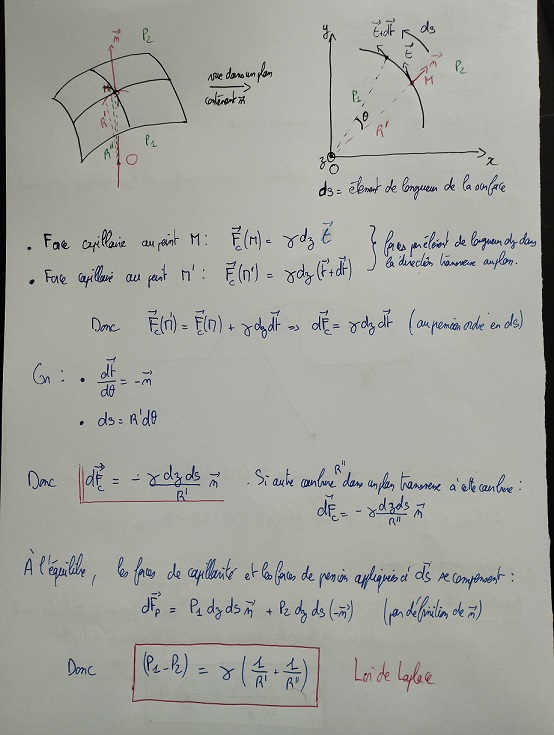 n⃗ P₂
M
R'
R''
P₁
O
vue dans un plan
contenant n⃗
y
t⃗+dt⃗ ds
t⃗ n⃗
P₂
M
P₁
θ
R'
z O x
ds = élément de longueur de la surface
• Force capillaire au point M : F⃗c(M) = γ dz t⃗
• Force capillaire au point M' : F⃗c(M') = γ dz (t⃗+dt⃗)
} forces par élément de longueur dz dans
la direction transverse au plan.
Donc F⃗c(M') = F⃗c(M) + γ dz dt⃗ => dF⃗c = γ dz dt⃗ (au premier ordre en ds)
On : • dt⃗/dθ = -n⃗
• ds = R'dθ
Donc dF⃗c = - γ dz ds/R' n⃗ . Si autre courbure R'' dans un plan transverse à cette courbure :
dF⃗c = - γ dz ds/R'' n⃗
À l'équilibre, les forces de capillarité et les forces de pression appliquées à ds⃗ se compensent :
dF⃗p = P₁ dz ds n⃗ + P₂ dz ds (-n⃗) (par définition de n⃗)
Donc (P₁ - P₂) = γ (1/R' + 1/R'') Loi de Laplace